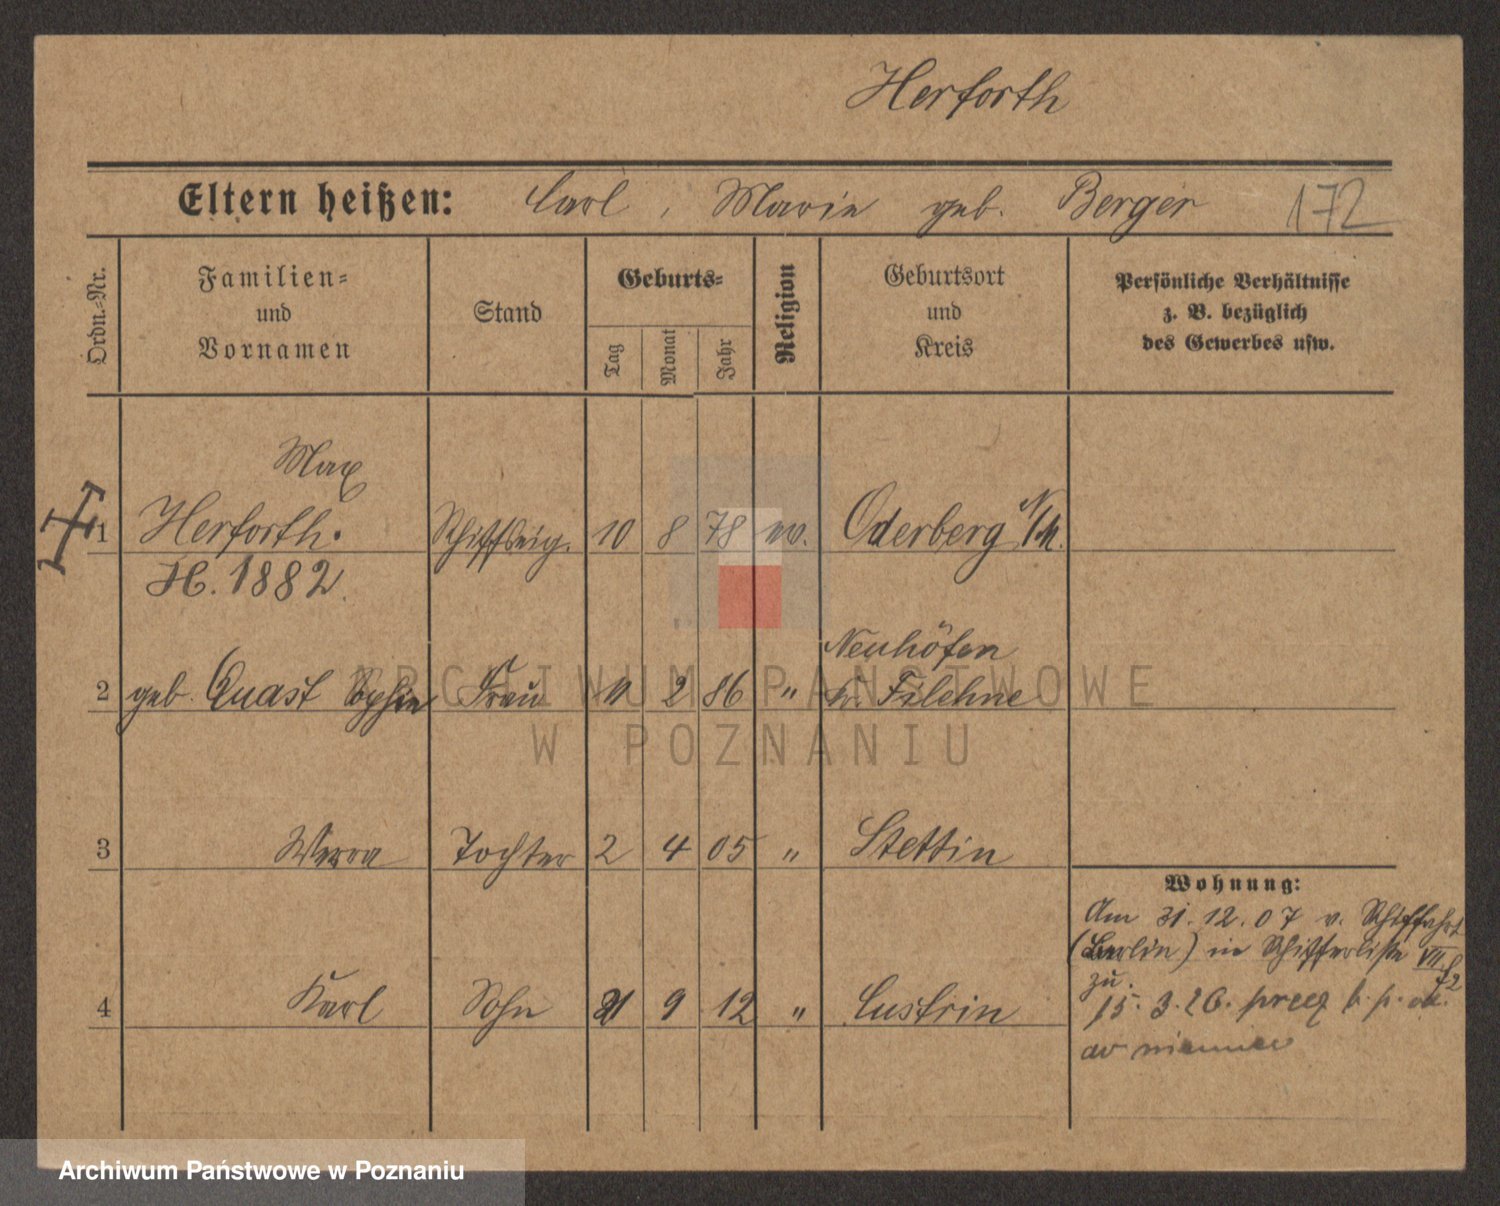 Herforth
Eltern heißen: Carl, Marie geb. Berger 172
Ordn.-Nr.
Familien-
und
Vornamen
Stand
Geburts-
Tag
Monat
Jahr
Religion
Geburtsort
und
Kreis
Persönliche Verhältnisse
z. B. bezüglich
des Gewerbes usw.
Max
1 Herforth. Schiffseig. 10 8 78 ev. Oderberg N/M.
H. 1882.
Neuhöfen
2 geb. Quast Sophie Frau 11 2 86 " Filehne
3 Werra Tochter 2 4 05 " Stettin
Wohnung:
Am 31.12.07 v. Schiffahrt
(Berlin) in Schifferliste VII
zu. 72
4 Karl Sohn 21 9 12 " Custrin
15. 3. 26. przez
do niemiec
ARCHIWUM PAŃSTWOWE
W POZNANIU
Archiwum Państwowe w Poznaniu